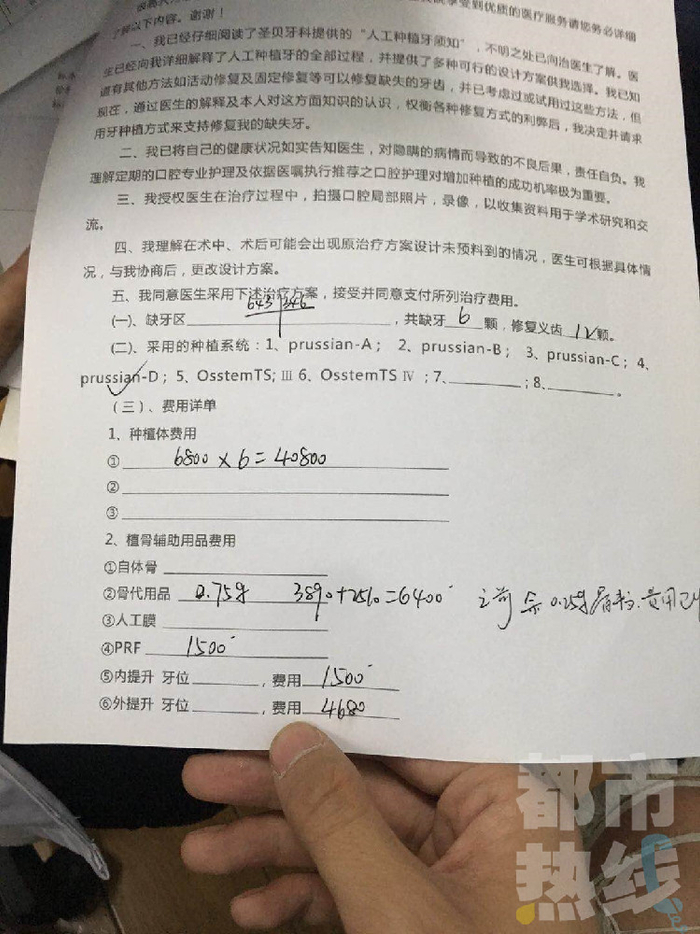 享受到优质的医疗服务请您务必详细
了解以下内容。谢谢！
一、我已经仔细阅读了圣贝牙科提供的“人工种植牙须知”，不明之处已向治医生了解。医
生已经向我详细解释了人工种植牙的全部过程，并提供了多种可行的设计方案供我选择。我已知
道有其他方法如活动修复及固定修复等可以修复缺失的牙齿，并已考虑过或试用过这些方法，但
现在，通过医生的解释及本人对这方面知识的认识，权衡各种修复方式的利弊后，我决定并请求
用牙种植方式来支持修复我的缺失牙。
二、我已将自己的健康状况如实告知医生，对隐瞒的病情而导致的不良后果，责任自负。我
理解定期的口腔专业护理及依据医嘱执行推荐之口腔护理对增加种植的成功机率极为重要。
三、我授权医生在治疗过程中，拍摄口腔局部照片，录像，以收集资料用于学术研究和交
流。
四、我理解在术中、术后可能会出现原治疗方案设计未预料到的情况，医生可根据具体情
况，与我协商后，更改设计方案。
五、我同意医生采用下述治疗方案，接受并同意支付所列治疗费用。
(一)、缺牙区 643 346 ，共缺牙 6 颗，修复义齿 12 颗。
(二)、采用的种植系统：1、prussian-A； 2、prussian-B； 3、prussian-C；4、
prussian-D；5、OsstemTS; Ⅲ 6、OsstemTS Ⅳ ；7、 ；8、 。
(三)、费用详单
1、种植体费用
① 6800×6=40800
②
③
2、植骨辅助用品费用
①自体骨
②骨代用品 0.75g 3890+2510=6400 之前 余 0.25g 骨粉. 费用已
③人工膜
④PRF 1500
⑤内提升 牙位 ，费用 1500
⑥外提升 牙位 ，费用 4680
都市
热线